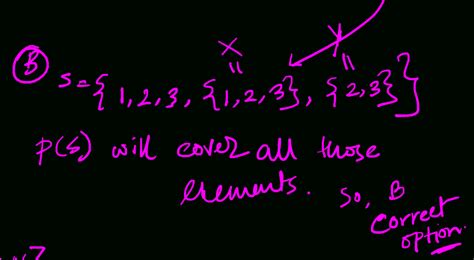 X Y
(B) S = { 1, 2, 3, {1, 2, 3}, {2, 3} }
P(S) will cover all those
elements. So, B
Correct
option.